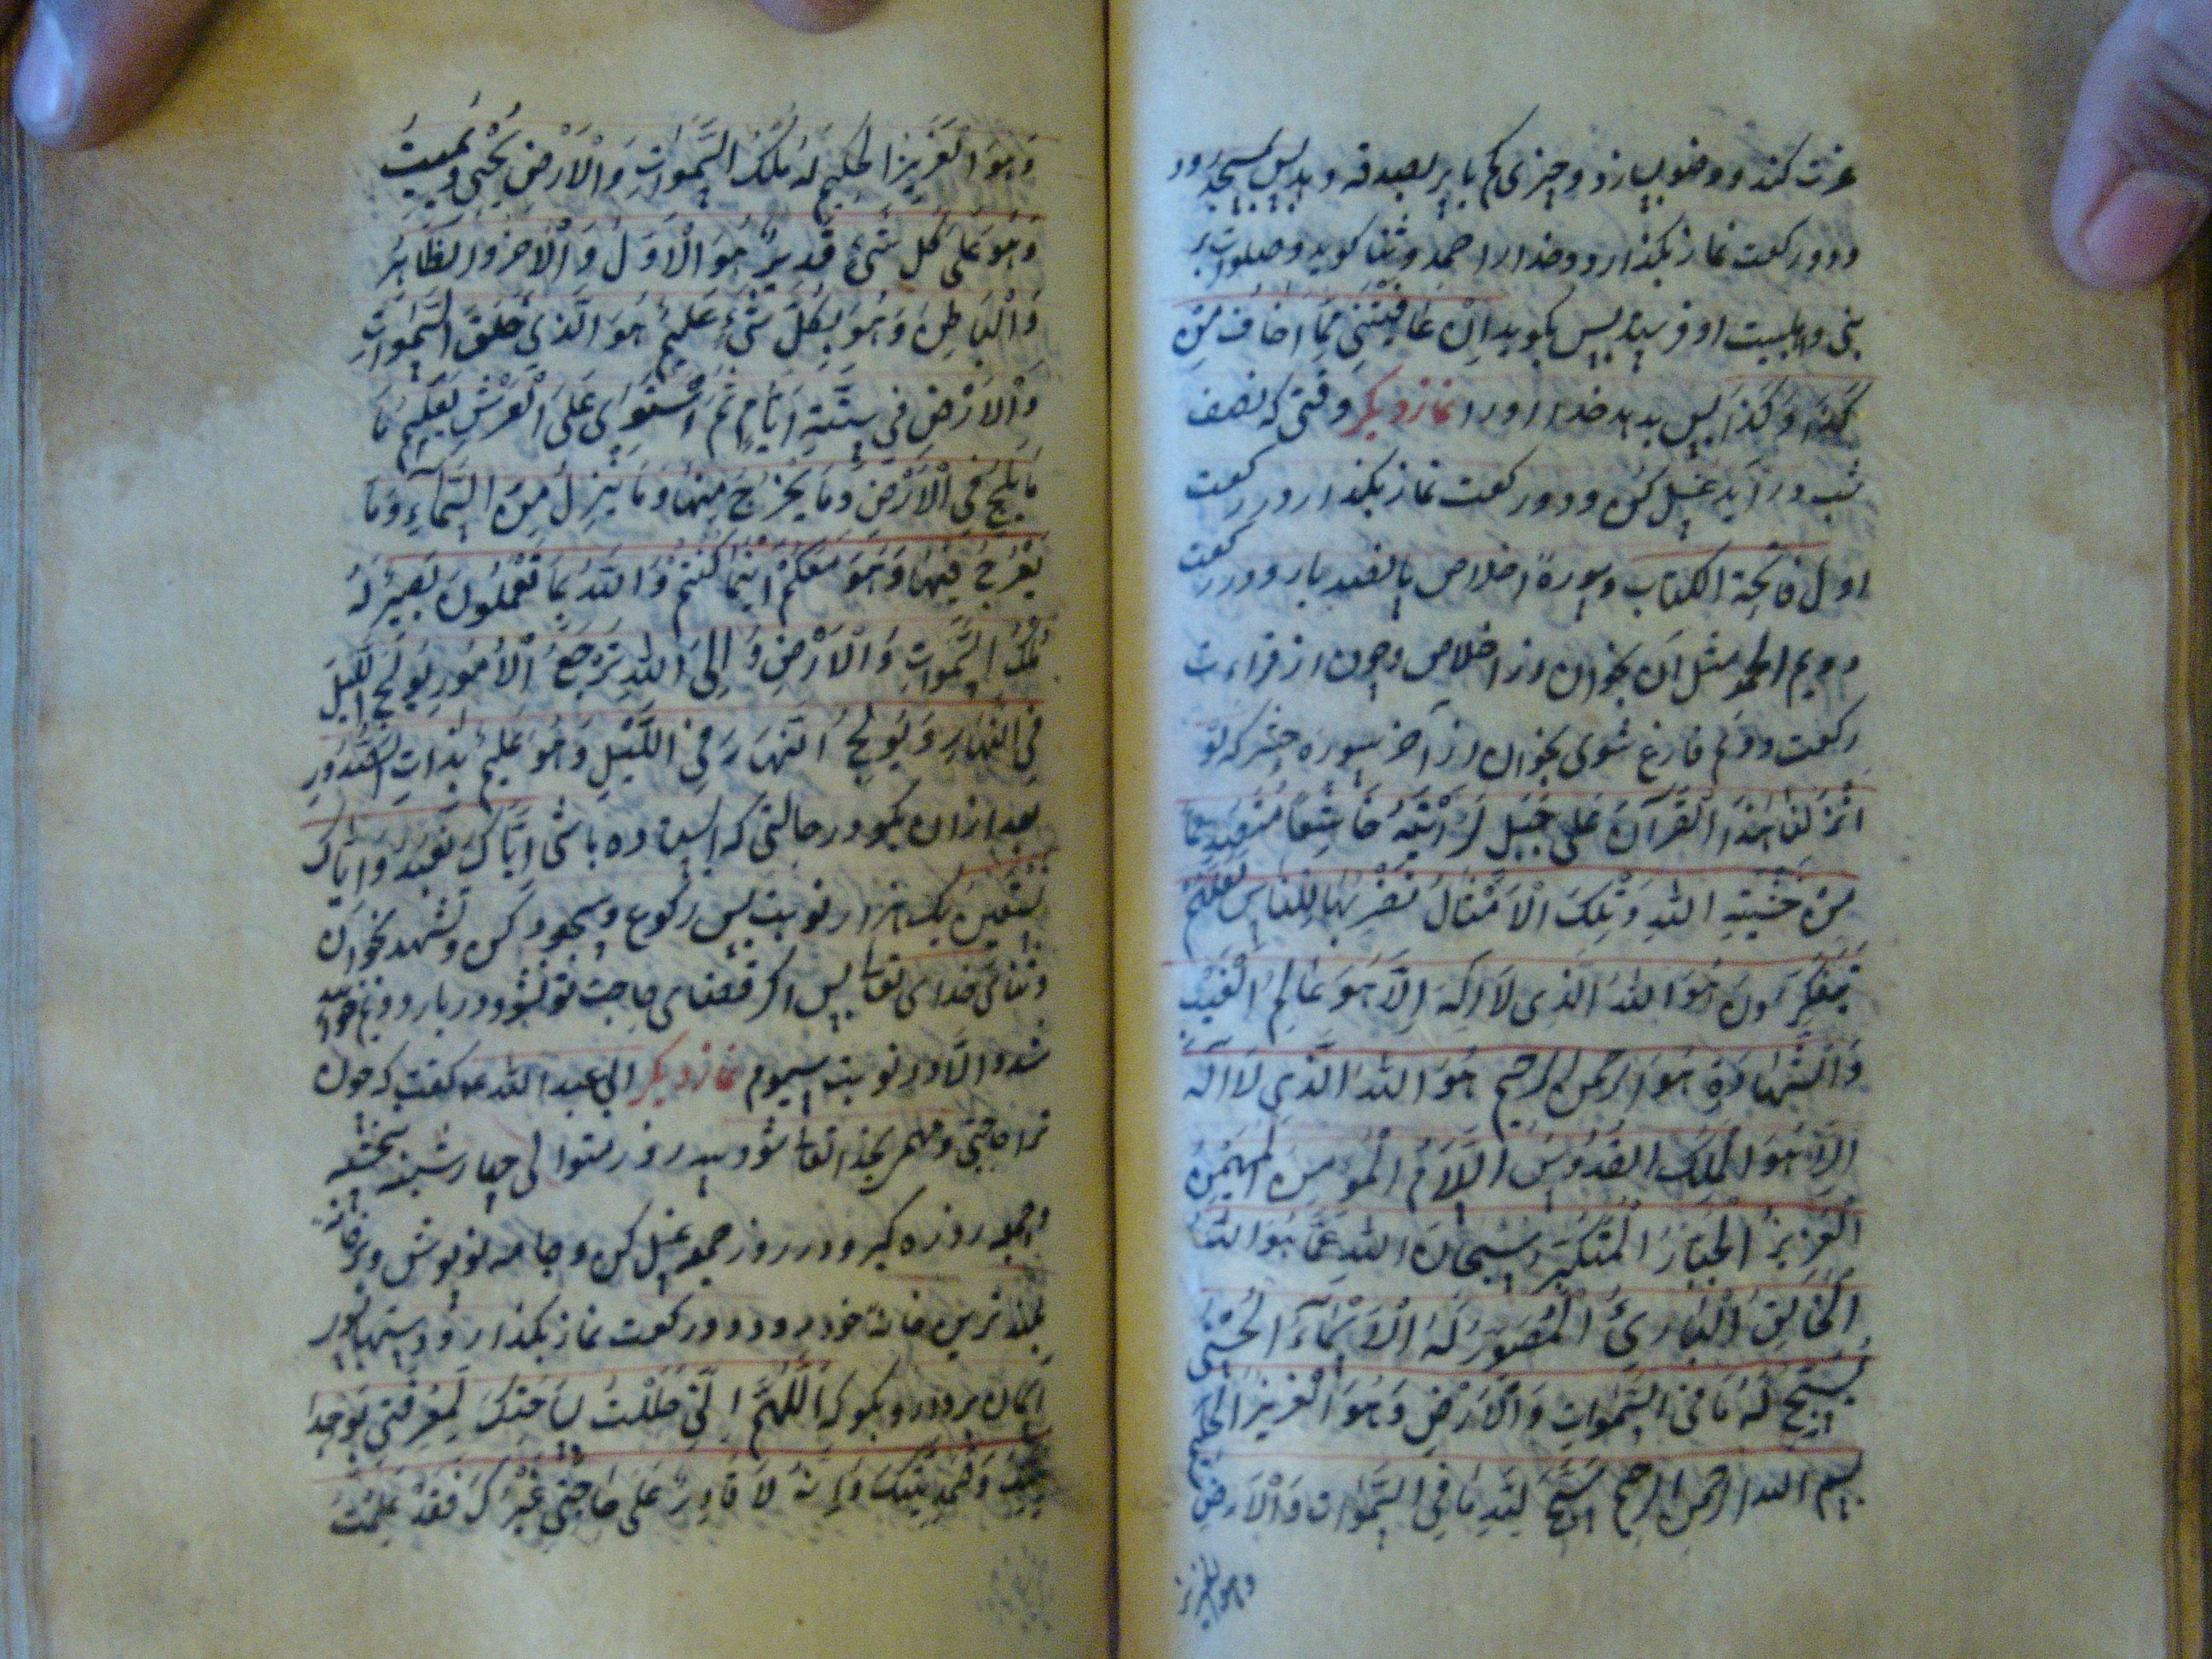 عزت کند و وضو بسازد و چیزی کم یا پر بصدقه و بدیس بمسجد رود
و دو رکعت نماز بکذارد و خدا را حمد و ثنا کوید و صلوات بر
نبی و اهلبیت او فرستد پس بکوید اِنْ عَافَیْتَنِی مِمَّا اَخَافُ مِنْ
کَذَا وَ کَذَا پس بدهد خدا اورا نماز دیکر وقتی که نصف
شب در آید غسل کن و دو رکعت نماز بکذار در رکعت
اول فاتحة الکتاب و سورهٔ اخلاص پانصد بار و در رکعت
دویم الحمد مثل آن بخوان و از اخلاص و چون از قراءت
رکعت دوم فارغ شوی بخوان از آخر سوره حشر که لَوْ
اَنْزَلْنَا هٰذَا الْقُرْآنَ عَلٰی جَبَلٍ لَرَاَیْتَهُ خَاشِعًا مُتَصَدِّعًا
مِنْ خَشْیَةِ اللهِ وَ تِلْکَ الْاَمْثَالُ نَضْرِبُهَا لِلنَّاسِ لَعَلَّهُمْ
یَتَفَکَّرُونَ هُوَ اللهُ الَّذِی لَا اِلٰهَ اِلَّا هُوَ عَالِمُ الْغَیْبِ
وَ الشَّهَادَةِ هُوَ الرَّحْمٰنُ الرَّحِیمُ هُوَ اللهُ الَّذِی لَا اِلٰهَ
اِلَّا هُوَ الْمَلِکُ الْقُدُّوسُ السَّلَامُ الْمُؤْمِنُ الْمُهَیْمِنُ
الْعَزِیزُ الْجَبَّارُ الْمُتَکَبِّرُ سُبْحَانَ اللهِ عَمَّا هُوَ اللهُ
الْخَالِقُ الْبَارِئُ الْمُصَوِّرُ لَهُ الْاَسْمَآءُ الْحُسْنٰی
یُسَبِّحُ لَهُ مَا فِی السَّمٰوَاتِ وَ الْاَرْضِ وَ هُوَ الْعَزِیزُ الْحَکِیمُ
بسم الله الرحمن الرحیم سَبَّحَ لِلّٰهِ مَا فِی السَّمٰوَاتِ وَ الْاَرْضِ
وهو العزیز
وَ هُوَ الْعَزِیزُ الْحَکِیمُ لَهُ مُلْکُ السَّمٰوَاتِ وَ الْاَرْضِ یُحْیِی وَ یُمِیتُ
وَ هُوَ عَلٰی کُلِّ شَیْءٍ قَدِیرٌ هُوَ الْاَوَّلُ وَ الْاٰخِرُ وَ الظَّاهِرُ
وَ الْبَاطِنُ وَ هُوَ بِکُلِّ شَیْءٍ عَلِیمٌ هُوَ الَّذِی خَلَقَ السَّمٰوَاتِ
وَ الْاَرْضَ فِی سِتَّةِ اَیَّامٍ ثُمَّ اسْتَوٰی عَلَی الْعَرْشِ یَعْلَمُ مَا
مَا یَلِجُ فِی الْاَرْضِ وَ مَا یَخْرُجُ مِنْهَا وَ مَا یَنْزِلُ مِنَ السَّمَآءِ وَ مَا
یَعْرُجُ فِیهَا وَ هُوَ مَعَکُمْ اَیْنَمَا کُنْتُمْ وَ اللهُ بِمَا تَعْمَلُونَ بَصِیرٌ لَهُ
مُلْکُ السَّمٰوَاتِ وَ الْاَرْضِ وَ اِلَی اللهِ تُرْجَعُ الْاُمُورُ یُولِجُ اللَّیْلَ
فِی النَّهَارِ وَ یُولِجُ النَّهَارَ فِی اللَّیْلِ وَ هُوَ عَلِیمٌ بِذَاتِ الصُّدُورِ
بعد ازان بکو در حالتی که ایستاده باشی اِیَّاکَ نَعْبُدُ وَ اِیَّاکَ
نَسْتَعِینُ یک هزار نوبت پس رکوع و سجود کن و تشهد بخوان
و ثنای خدای تعا پس اکر قضای حاجت تو نشود در بار دوم
شد و الا در نوبت سیوم نماز دیکر ابی عبد الله ع کفت که چون
ترا حاجتی و مهم بخدا تعا شود سه روز متوالی چهارشنبه پنجشنبه
و جمعه روزه کیر و در روز جمعه غسل کن و جامه نو بپوش و بر خانه
بلند ترین خانهٔ خود برو و دو رکعت نماز بکذار و دستها بسوی
آسمان بردار و بکو که اَللّٰهُمَّ اِنِّی حَلَلْتُ بِسَاحَتِکَ لِمَعْرِفَتِی بِوَحْدَا
نِیَّتِکَ وَ صَمَدِیَّتِکَ وَ اِنَّهُ لَا قَادِرَ عَلٰی حَاجَتِی غَیْرُکَ فَقَدْ عَلِمْتُ